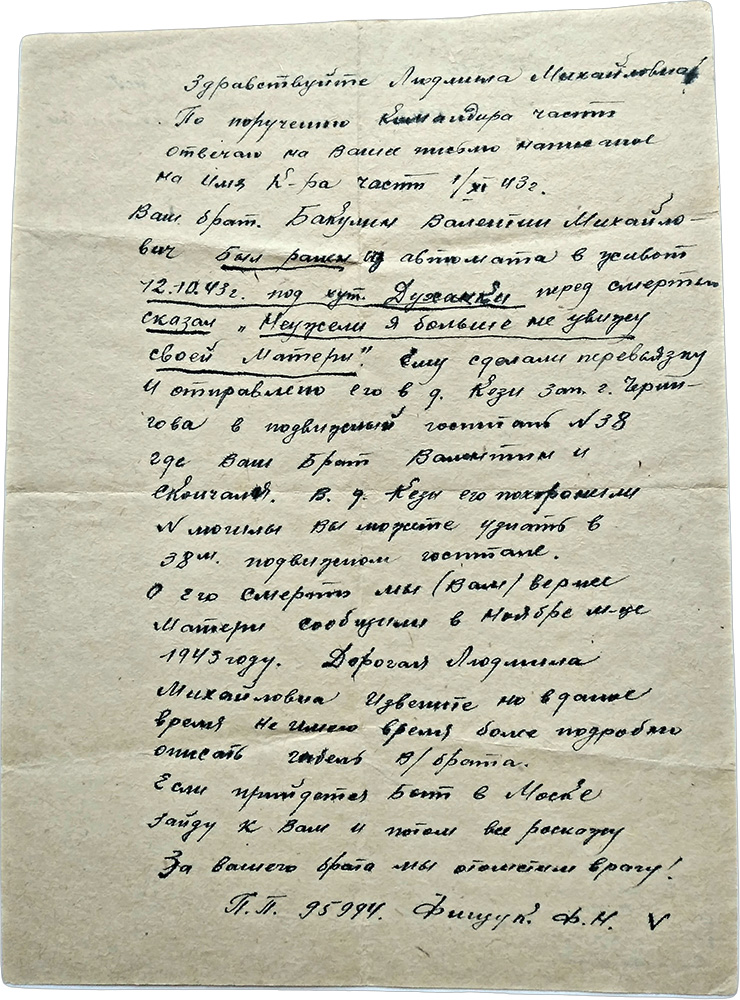 Здравствуйте Людмила Михайловна!
По поручению Командира части
отвечаю на Ваше письмо написаное
на имя К-ра части 1/XI 43г.
Ваш брат. Бакулин Валентин Михайло-
вич был ранен из автомата в живот
12.10.43г. под хут. Духанки перед смертью
сказал „Неужели я больше не увижу
своей Матери". Ему сделали перевязку
и отправлено его в д. Кези зап. г. Черни-
гова в подвижный госпталь N 38
где Ваш Брат Валентин и
скончался. В. д. Кезы его похоронили
N могилы Вы можете узнать в
38м. подвижном госптале.
О его смерти мы (Вам) вернее
Матери сообщили в Ноябре м-це
1943 году. Дорогая Людмила
Михайловна Извените но в даное
время не имею время более подробно
описать гибель В/брата.
Если прийдется Быт в Москве
зайду к Вам и потом все роскажу
За вашего брата мы отомстим врагу!
П.П. 95994. Фищук. Ф.Н. V